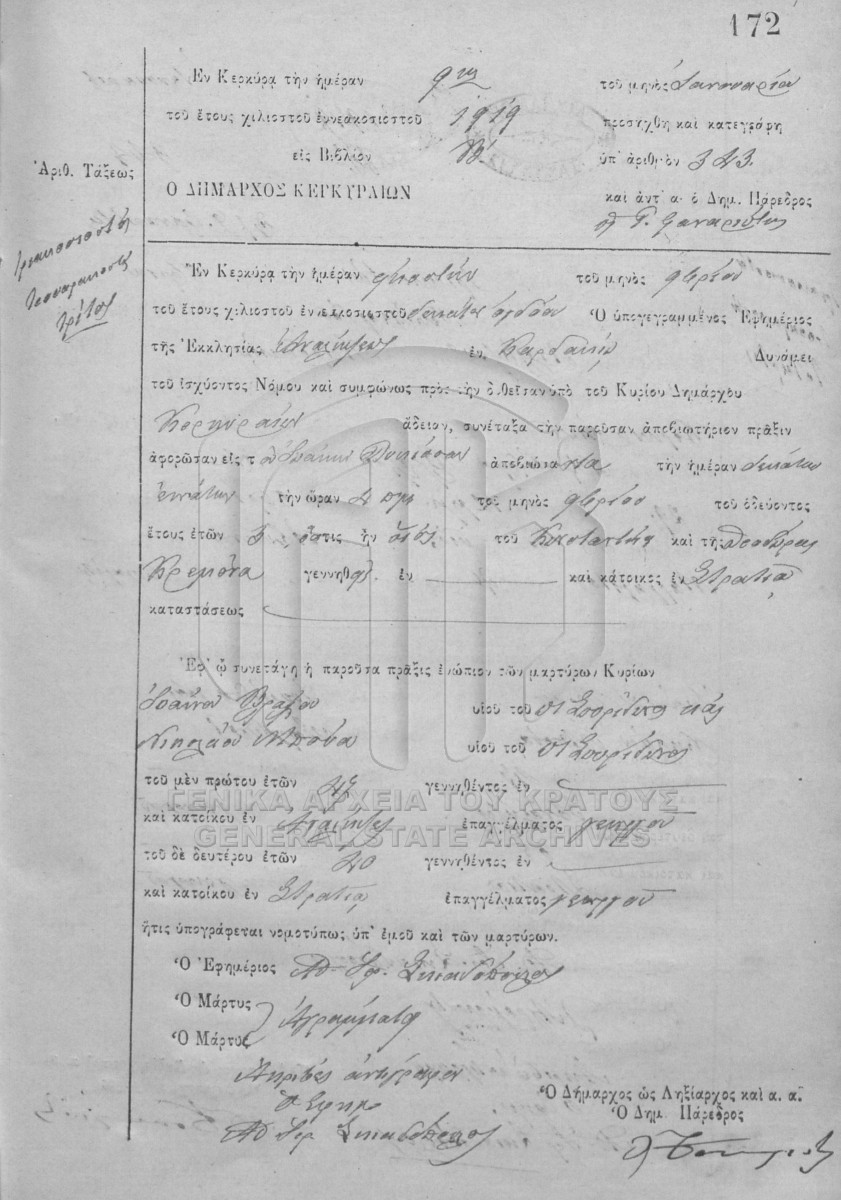 172
Ἐν Κερκύρᾳ τὴν ἡμέραν 9ην τοῦ μηνὸς Ἰανουαρίου
τοῦ ἔτους χιλιοστοῦ ἐννεακοσιοστοῦ 1919 προσήχθη καὶ κατεγράφη
εἰς Βιβλίον Β΄. ὑπ' ἀριθμὸν 343.
Ἀριθ. Τάξεως
Ο ΔΗΜΑΡΧΟΣ ΚΕΡΚΥΡΑΙΩΝ καὶ ἀντ' α· ὁ Δημ. Πάρεδρος
τριακοσιοστὸς
τεσσαρακοστὸς
τρίτος
Ἐν Κερκύρᾳ τὴν ἡμέραν εἰκοστὴν τοῦ μηνὸς 9βρίου
τοῦ ἔτους χιλιοστοῦ ἐννεακοσιοστοῦ δεκάτου ὀγδόου Ὁ ὑπογεγραμμένος Ἐφημέριος
τῆς Ἐκκλησίας Ἀναλήψεως ἐν Δυνάμει
τοῦ ἰσχύοντος Νόμου καὶ συμφώνως πρὸς τὴν δοθεῖσαν ὑπὸ τοῦ Κυρίου Δημάρχου
Κερκυραίων ἄδειαν, συνέταξα τὴν παροῦσαν ἀποβιωτήριον πρᾶξιν
ἀφορῶσαν εἰς τὸν Ἰωάννην ἀποβιώσαντα τὴν ἡμέραν δεκάτην
ἐννάτην τὴν ὥραν 4 πμ τοῦ μηνὸς 9βρίου τοῦ ὁδεύοντος
ἔτους ἐτῶν 3 ὅστις ἦν υἱὸς τοῦ Κωνσταντῆ καὶ τῆς Θεοδώρας
Κρεμόνα γεννηθεὶς ἐν καὶ κάτοικος ἐν Στρατιᾷ
καταστάσεως
Ἐφ' ᾧ συνετάγη ἡ παροῦσα πρᾶξις ἐνώπιον τῶν μαρτύρων Κυρίων
Ἰωάννου Βλάχου υἱοῦ τοῦ Σπυρίδωνος
Νικολάου Μπούα υἱοῦ τοῦ Σπυρίδωνος
τοῦ μὲν πρώτου ἐτῶν γεννηθέντος ἐν
καὶ κατοίκου ἐν ἐπαγγέλματος γεωργοῦ
τοῦ δὲ δευτέρου ἐτῶν 40 γεννηθέντος ἐν
καὶ κατοίκου ἐν Στρατιᾷ ἐπαγγέλματος γεωργοῦ
ἥτις ὑπογράφεται νομοτύπως ὑπ' ἐμοῦ καὶ τῶν μαρτύρων.
Ὁ Ἐφημέριος
Ὁ Μάρτυς
Ὁ Μάρτυς
Ἀγράμματοι
Ἀκριβὲς ἀντίγραφον
Ὁ Ἐφημ
Ὁ Δήμαρχος ὡς Ληξίαρχος καὶ α. α.
Ὁ Δημ. Πάρεδρος
ΓΕΝΙΚΑ ΑΡΧΕΙΑ ΤΟΥ ΚΡΑΤΟΥΣ
GENERAL STATE ARCHIVES